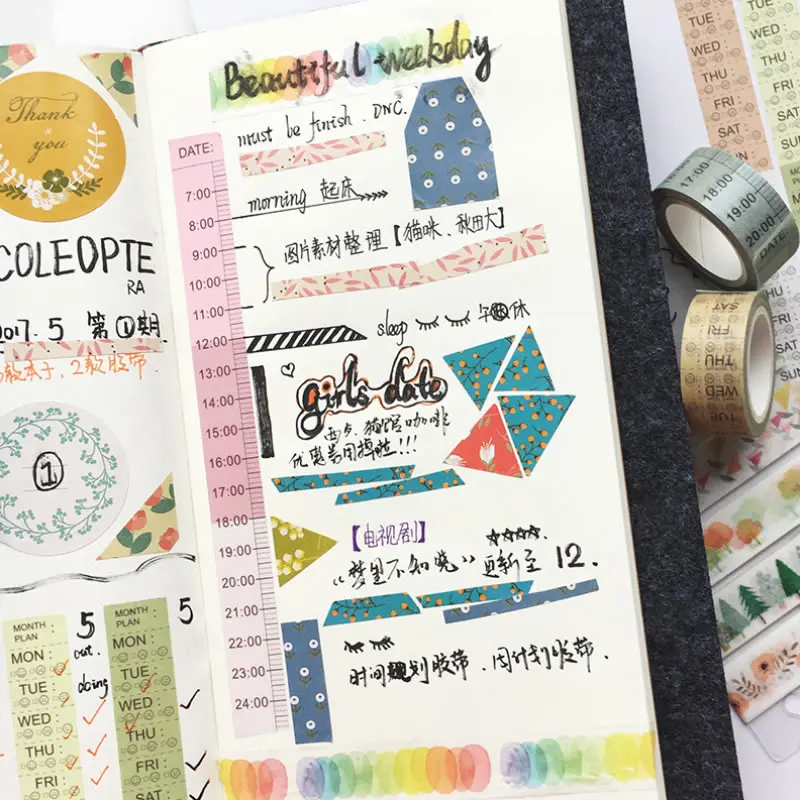 Thank
you
COLEOPTE
RA
2017.5 第①期
本子，2款胶带．
①
MONTH
PLAN
5
MON :
out.
TUE :
doing
WED :
THU :
FRI :
SAT :
MONTH
PLAN
5
MON :
TUE :
WED :
THU :
FRI :
SAT :
Beautiful weekday
DATE:
7:00
8:00
9:00
10:00
11:00
12:00
13:00
14:00
15:00
16:00
17:00
18:00
19:00
20:00
21:00
22:00
23:00
24:00
must be finish . DNC.
morning 起床
图片素材整理【猫咪、秋田犬】
sleep 午休
girl's date
西点．猫馆咖啡
优惠券用掉啦!!!
【电视剧】
☆☆☆☆
《梦里不知晓》更新至 12.
时间规划胶带．周计划胶带．
TUE :
WED :
THU :
FRI :
SAT :
SUN :
TUE :
WED :
THU :
FRI :
SAT :
SUN
17:00
18:00
19:00
20:00
DATE:
SAT
FRI
THU
WED